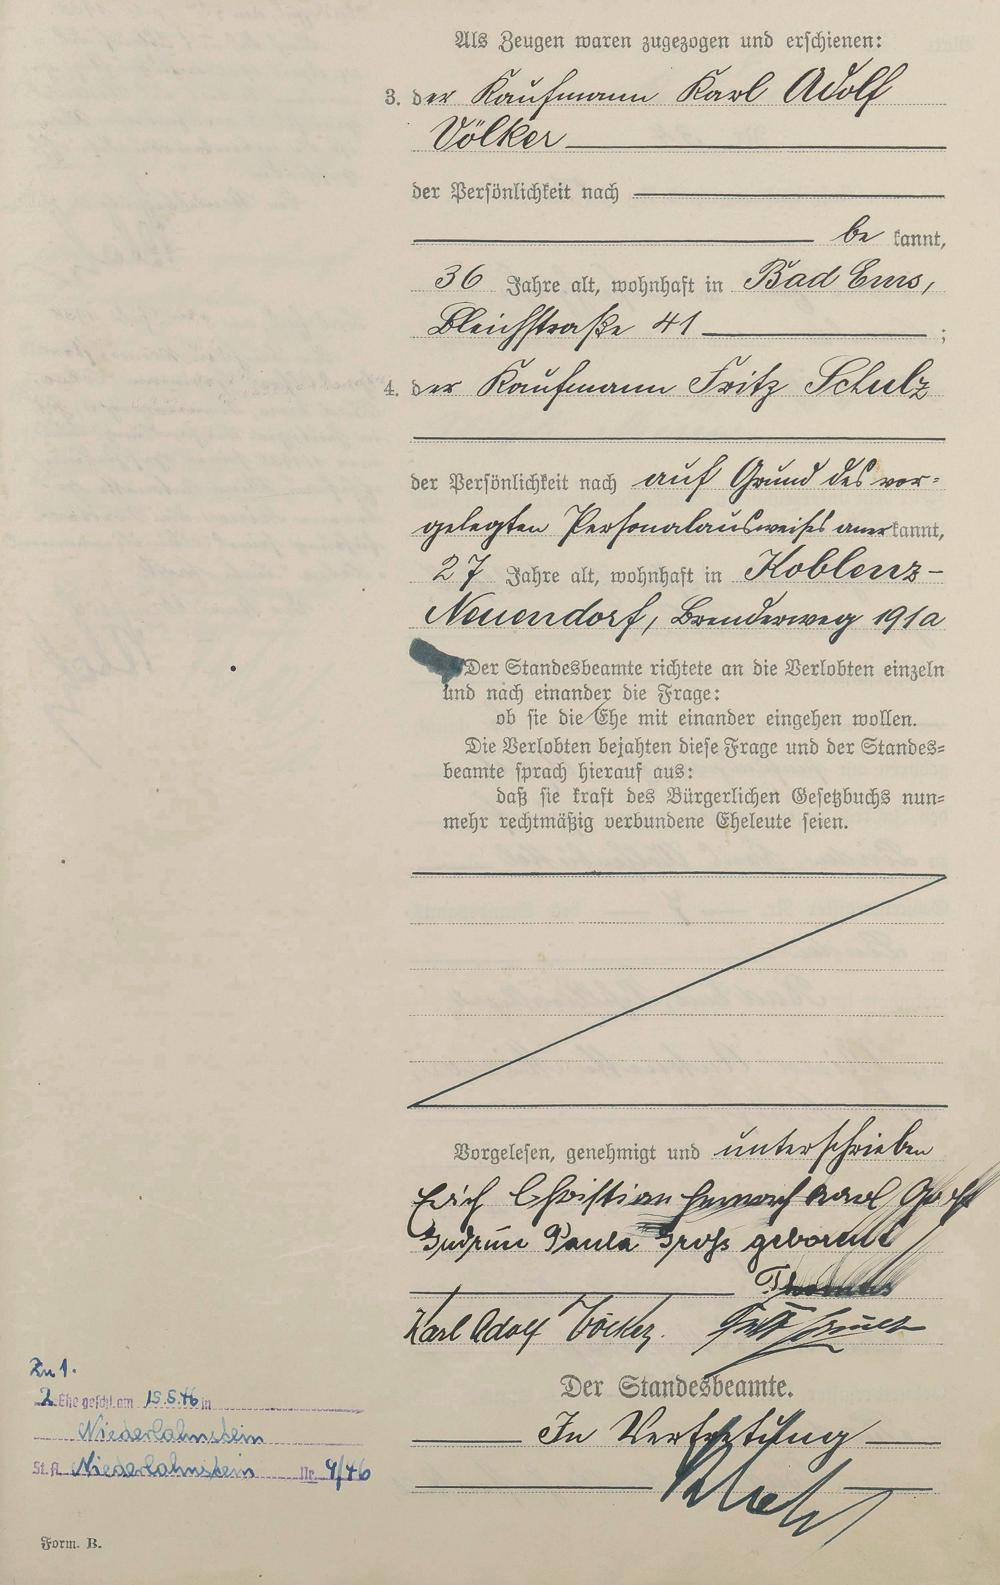 Als Zeugen waren zugezogen und erschienen:
3. der Kaufmann Karl Adolf
Völker
der Persönlichkeit nach
be kannt,
36 Jahre alt, wohnhaft in Bad Ems,
Bleichstraße 41 ;
4. der Kaufmann Fritz Schulz
der Persönlichkeit nach auf Grund des vor=
gelegten Personalausweises anerkannt,
27 Jahre alt, wohnhaft in Koblenz-
Neuendorf, Brenderweg 191a
Der Standesbeamte richtete an die Verlobten einzeln
und nach einander die Frage:
ob sie die Ehe mit einander eingehen wollen.
Die Verlobten bejahten diese Frage und der Standes=
beamte sprach hierauf aus:
daß sie kraft des Bürgerlichen Gesetzbuchs nun=
mehr rechtmäßig verbundene Eheleute seien.
Vorgelesen, genehmigt und unterschrieben
Erich Christian Karl
Gudrun Paula Groß geborene
Thomas
Karl Adolf Völker. Fritz Schulz
Der Standesbeamte.
In Vertretung
Zu 1.
2. Ehe geschl. am 15.5.46 in
Niederlahnstein
St. A. Niederlahnstein Nr. 9/46
Form. B.